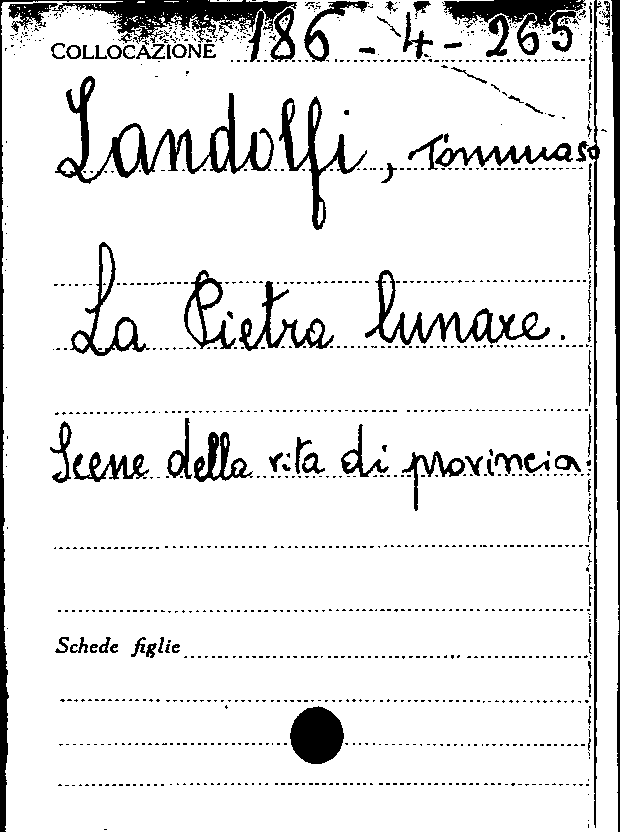 COLLOCAZIONE 186 - 4 - 265
Landolfi, Tommaso
La Pietra lunare.
Scene della vita di provincia.
Schede figlie